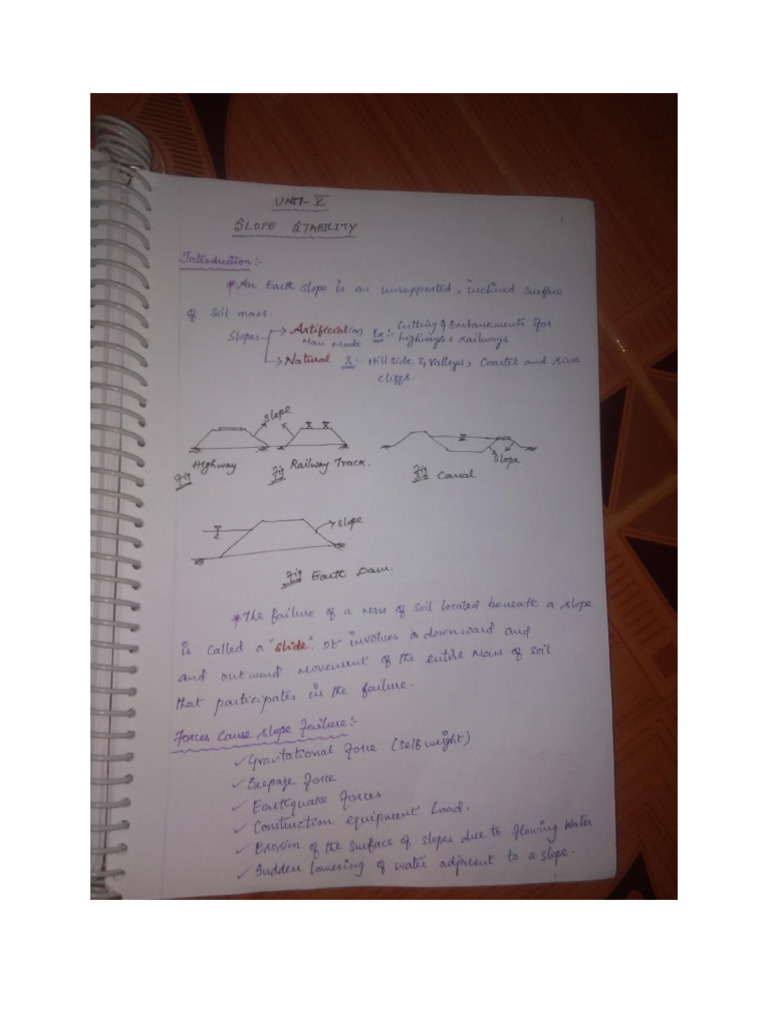 UNIT-V
SLOPE STABILITY
Introduction:-
* An Earth slope is an unsupported, inclined surface
of soil mass.
Slopes → Artificial (or) Man Made Ex:- Cutting & Embankments for highways & railways
→ Natural Ex:- Hill side &, Valleys, Coastal and river
cliffs.
Slope
Fig Highway
Fig Railway Track.
Slope
Fig Canal
slope
Fig Earth Dam.
* The failure of a mass of soil located beneath a slope
is called a "slide". It involves a downward and
and outward movement of the entire mass of soil
that participates in the failure.
Forces Cause slope Failure:-
✓ Gravitational force (self weight)
✓ Seepage force
✓ Earthquake forces
✓ Construction equipment load.
✓ Erosion of the surface of slopes due to flowing water
✓ Sudden lowering of water adjacent to a slope.